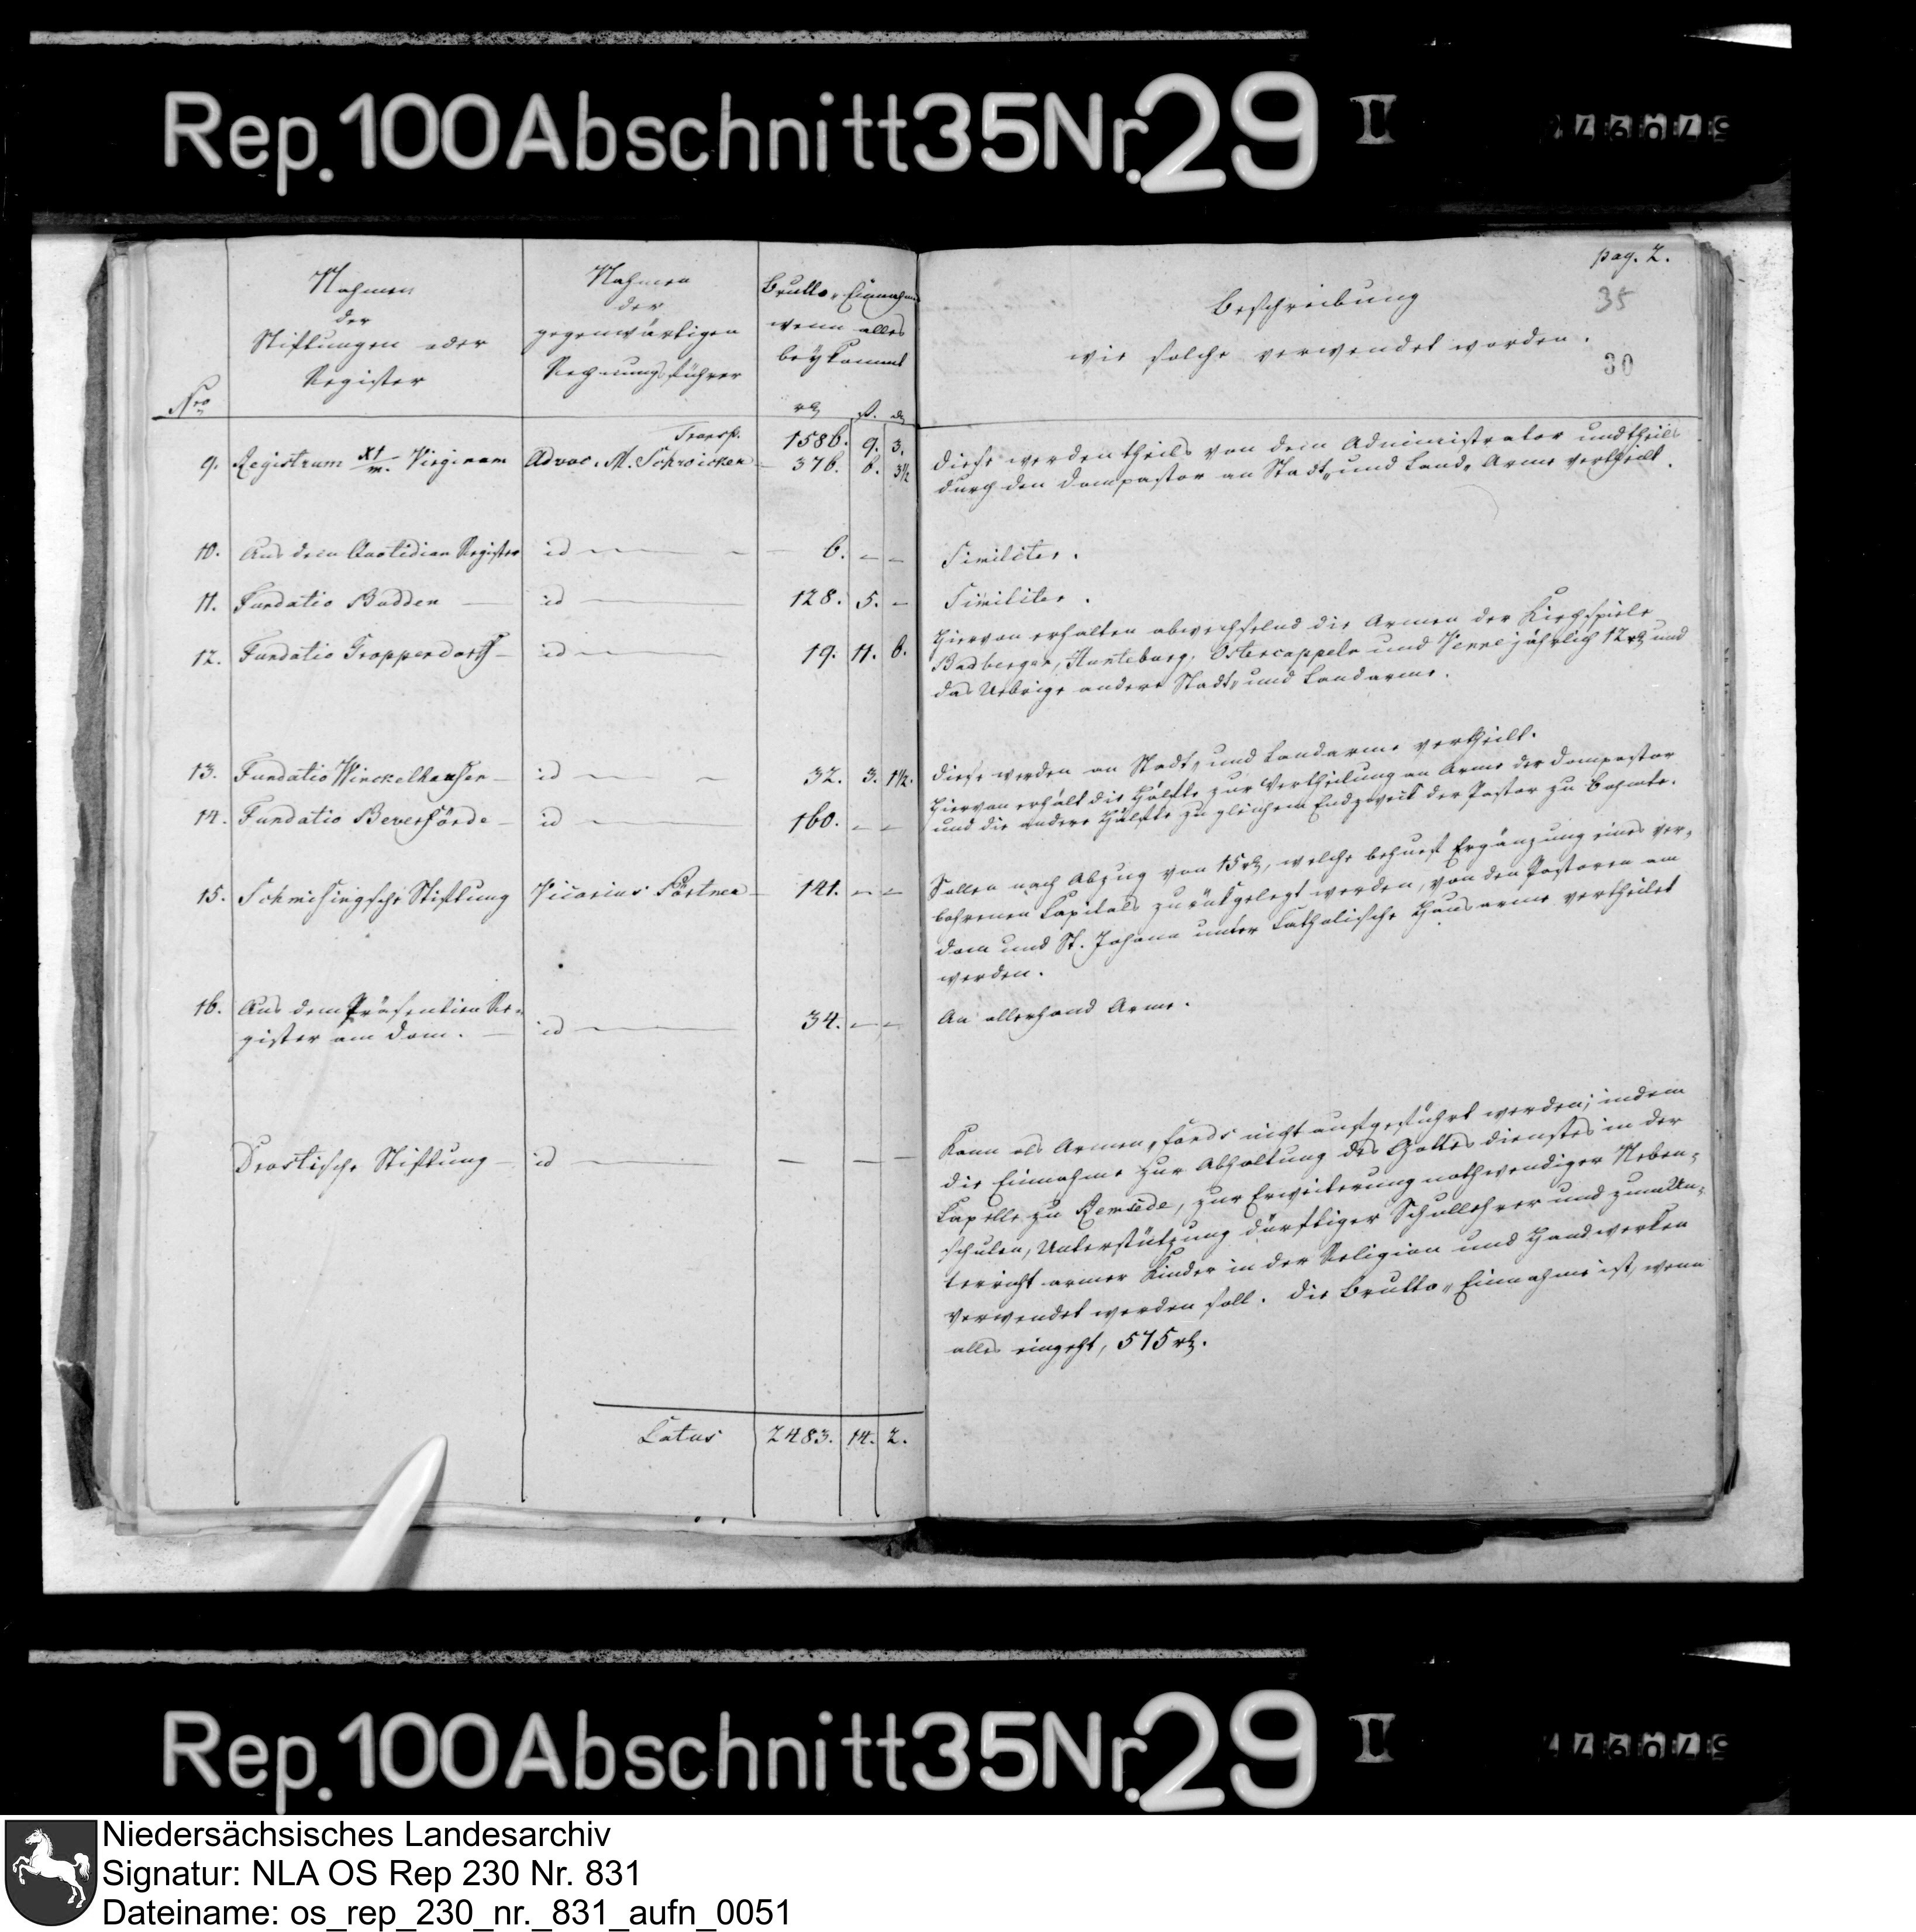 Rep. 100 Abschnitt 35 Nr. 29 II
pag. 2.
35
30
Nro
Nahmen
der
Stiftungen oder
Register
Nahmen
der
gegenwärtigen
Rechnungsführer
Brutto-Einnahme
wenn alles
beykommt
rt ß. d
Beschreibung
wie solche verwendet worden.
Transp. 1586. 9. 3.
9. Registrum XI/m. Virginum Advoc. M. Schwicker 376. 6. 3½
Diese werden theils von dem Administrator und theils
durch den Dompastor an Stadt- und Land-Arme vertheilt.
10. Aus dem Quotidian Register id 6. – –
Similiter.
11. Fundatio Budden id 128. 5. –
Similiter.
12. Fundatio Gropperdorff id 19. 11. 6.
Hiervon erhalten abwechselnd die Armen der Kirchspiele
Badbergen, Hunteburg, Ostercappeln und Venne jährlich 12 rt und
das Uebrige andere Stadt- und Landarme.
13. Fundatio Winckelhausen id 32. 3. 1½.
Diese werden an Stadt- und Landarme vertheilt.
14. Fundatio Beverförde id 160. – –
Hiervon erhält die Hälfte zur Vertheilung an Arme der Dompastor
und die andere Hälfte zu gleichem Endzweck der Pastor zu Bohmte.
15. Schmisingsche Stiftung Vicarius Pörtner 141. – –
Sollen nach Abzug von 15 rt, welche behuef Ergänzung eines ver-
lohrenen Capitals zurückgelegt werden, von den Pastoren am
Dom und St. Johann unter Catholische Hausarme vertheilet
werden.
16. Aus dem Präsentien Re-
gister am Dom. id 34. – –
An allerhand Arme.
Drostische Stiftung id – – –
Kann als Armen-fonds nicht aufgeführt werden; indem
die Einnahme zur Abhaltung des Gottesdienstes in der
Capelle zu Remsede, zur Erweiterung nothwendiger Neben-
schulen, Unterstützung dürftiger Schullehrer und zum Un-
terricht armer Kinder in der Religion und Handwerken
verwendet werden soll. Die Brutto-Einnahme ist, wenn
alles eingeht, 575 rt.
Latus 2483. 14. 2.
Rep. 100 Abschnitt 35 Nr. 29 II
Niedersächsisches Landesarchiv
Signatur: NLA OS Rep 230 Nr. 831
Dateiname: os_rep_230_nr._831_aufn_0051